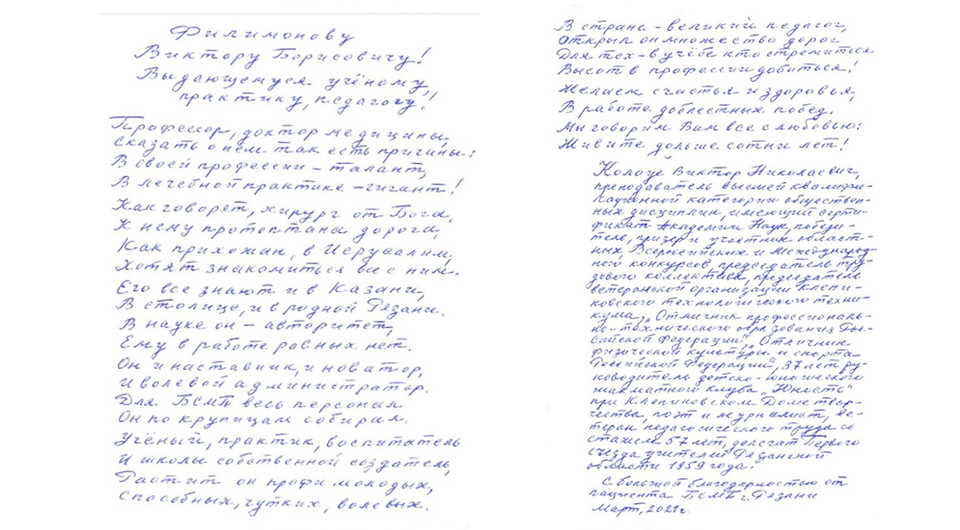 Филимонову
Виктору Борисовичу!
Выдающемуся учёному,
практику, педагогу!
Профессор, доктор медицины,
Сказать о нём так есть причины:
В своей профессии – талант,
В лечебной практике – гигант!
Как говорят, хирург от Бога,
К нему протоптана дорога,
Как прихожан, в Иерусалим,
Хотят знакомиться все с ним.
Его все знают и в Казани,
В столице, и в родной Рязани.
В науке он – авторитет,
Ему в работе равных нет.
Он и наставник, и новатор,
И волевой администратор.
Для БСМП весь персонал
Он по крупицам собирал.
Учёный, практик, воспитатель
И школы собственной создатель,
Растит он профи молодых,
Способных, чутких, волевых.
В стране – великий педагог,
Открыл он множество дорог
Для тех – в учёбе кто стремиться
Высот в профессии добиться!
Желаем счастья и здоровья,
В работе доблестных побед.
Мы говорим Вам все с любовью:
Живите дольше сотни лет!
Колодзе Виктор Николаевич,
преподаватель высшей квалифи-
кационной категории обществен-
ных дисциплин, имеющий серти-
фикат Академии Наук, победи-
тель, призер и участник област-
ных, Всероссийских и Международ-
ного конкурсов, председатель тру-
дового коллектива, председатель
ветеранской организации Клепи-
ковского технологического техни-
кума, „Отличник профессиональ-
но-технического образования Рос-
сийской Федерации", „Отличник
физической культуры и спорта
Российской Федерации", 37 лет ру-
ководитель детско-юношеского
шахматного клуба „Юность"
при Клепиковском Доме твор-
чества, поэт и журналист, ве-
теран педагогического труда со
стажем 57 лет, делегат Первого
съезда учителей Рязанской
области 1959 года.
С большой благодарностью от
пациента БСМП г. Рязани
Март, 2021г.